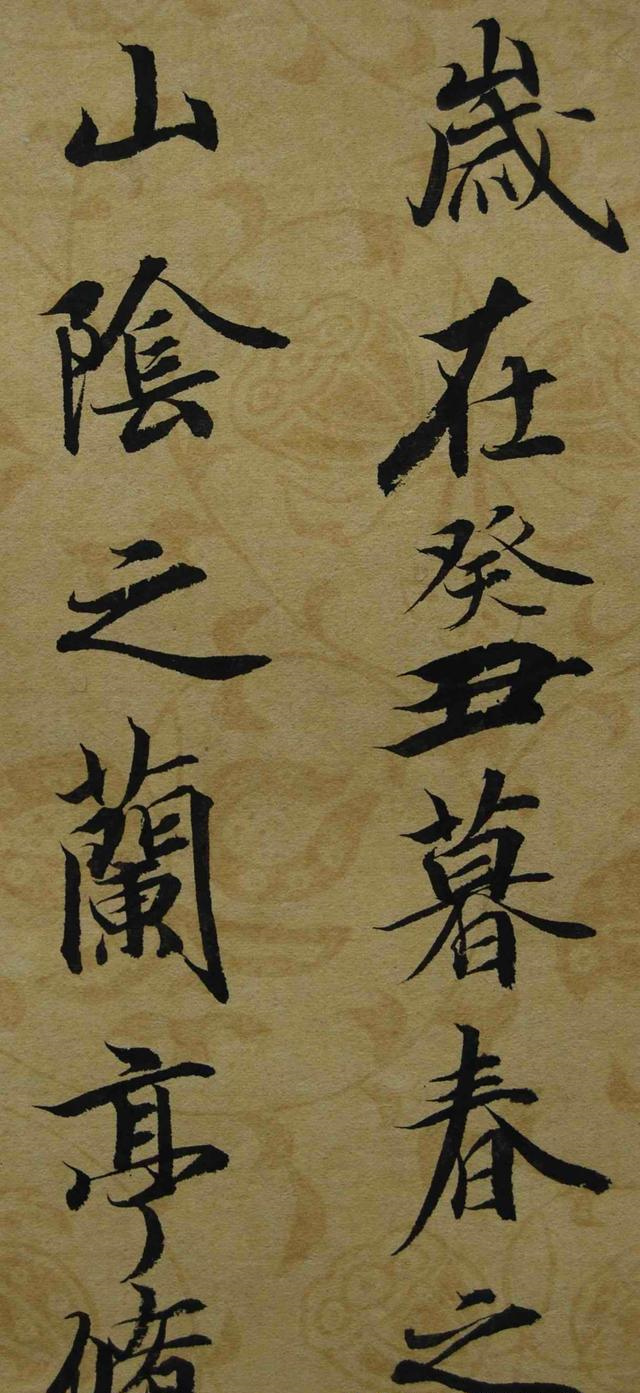 歲在癸丑暮春之
山陰之蘭亭脩